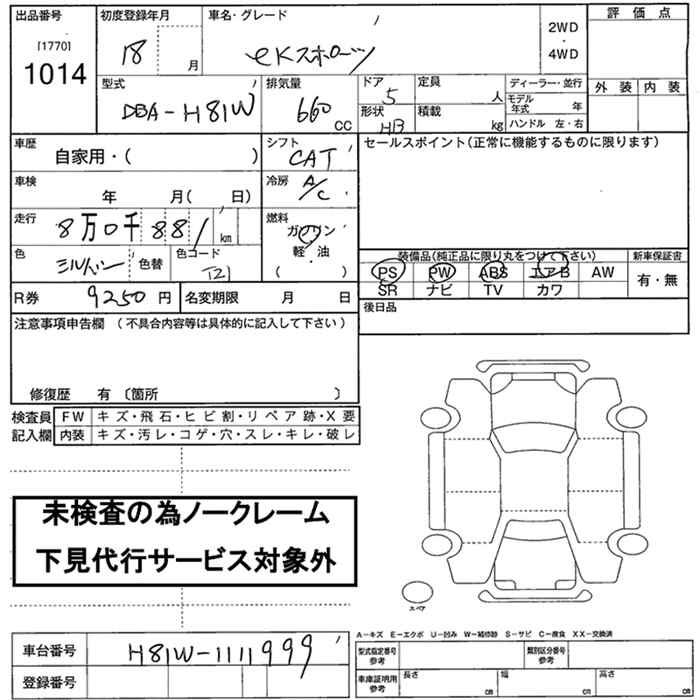 出品番号 初度登録年月 車名・グレード 評価点
[1770]
1014
18 月
eKスポーツ
2WD
・
4WD
外装 内装
型式 排気量 ドア 定員 ディーラー・並行
DBA-H81W 660 CC 5 人
モデル年式 年
形状 積載
HB kg ハンドル 左・右
車歴 シフト セールスポイント(正常に機能するものに限ります)
自家用・( )
CAT
車検 冷房
年 月( 日) A/C
走行 燃料
8万0千881 km ガソリン
軽・油
( )
色 色替 色コード
シルバー
装備品(純正品に限り丸をつけて下さい) 新車保証書
PS PW ABS エアB AW 有・無
SR ナビ TV カワ
R券 9250円 名変期限 月 日
後日品
注意事項申告欄 (不具合内容等は具体的に記入して下さい)
修復歴 有 〔箇所 〕
検査員 FW キズ・飛石・ヒビ割・リペア跡・X要
記入欄 内装 キズ・汚レ・コゲ・穴・スレ・キレ・破レ
未検査の為ノークレーム
下見代行サービス対象外
スペア
A-キズ E-エクボ U-凹み W-補修跡 S-サビ C-腐食 XX-交換済
車台番号 H81W-1111999
型式指定番号 参考 類別区分番号 参考
登録番号
車庫証明用 参考 長さ cm 幅 cm 高さ cm